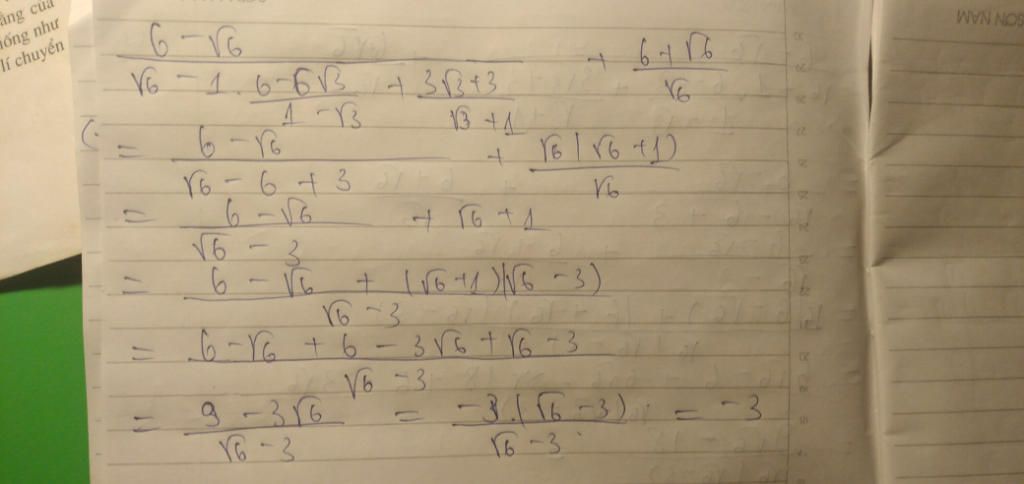 ảng của
iống như
lí chuyển
SƠN NAM
(6 - √6)/(√6 - 1 . (6 - 6√3)/(1 - √3) + (3√3 + 3)/(√3 + 1)) + (6 + √6)/√6
= (6 - √6)/(√6 - 6 + 3) + √6(√6 + 1)/√6
= (6 - √6)/(√6 - 3) + √6 + 1
= (6 - √6 + (√6 + 1)(√6 - 3))/(√6 - 3)
= (6 - √6 + 6 - 3√6 + √6 - 3)/(√6 - 3)
= (9 - 3√6)/(√6 - 3) = -3.(√6 - 3)/(√6 - 3) = -3